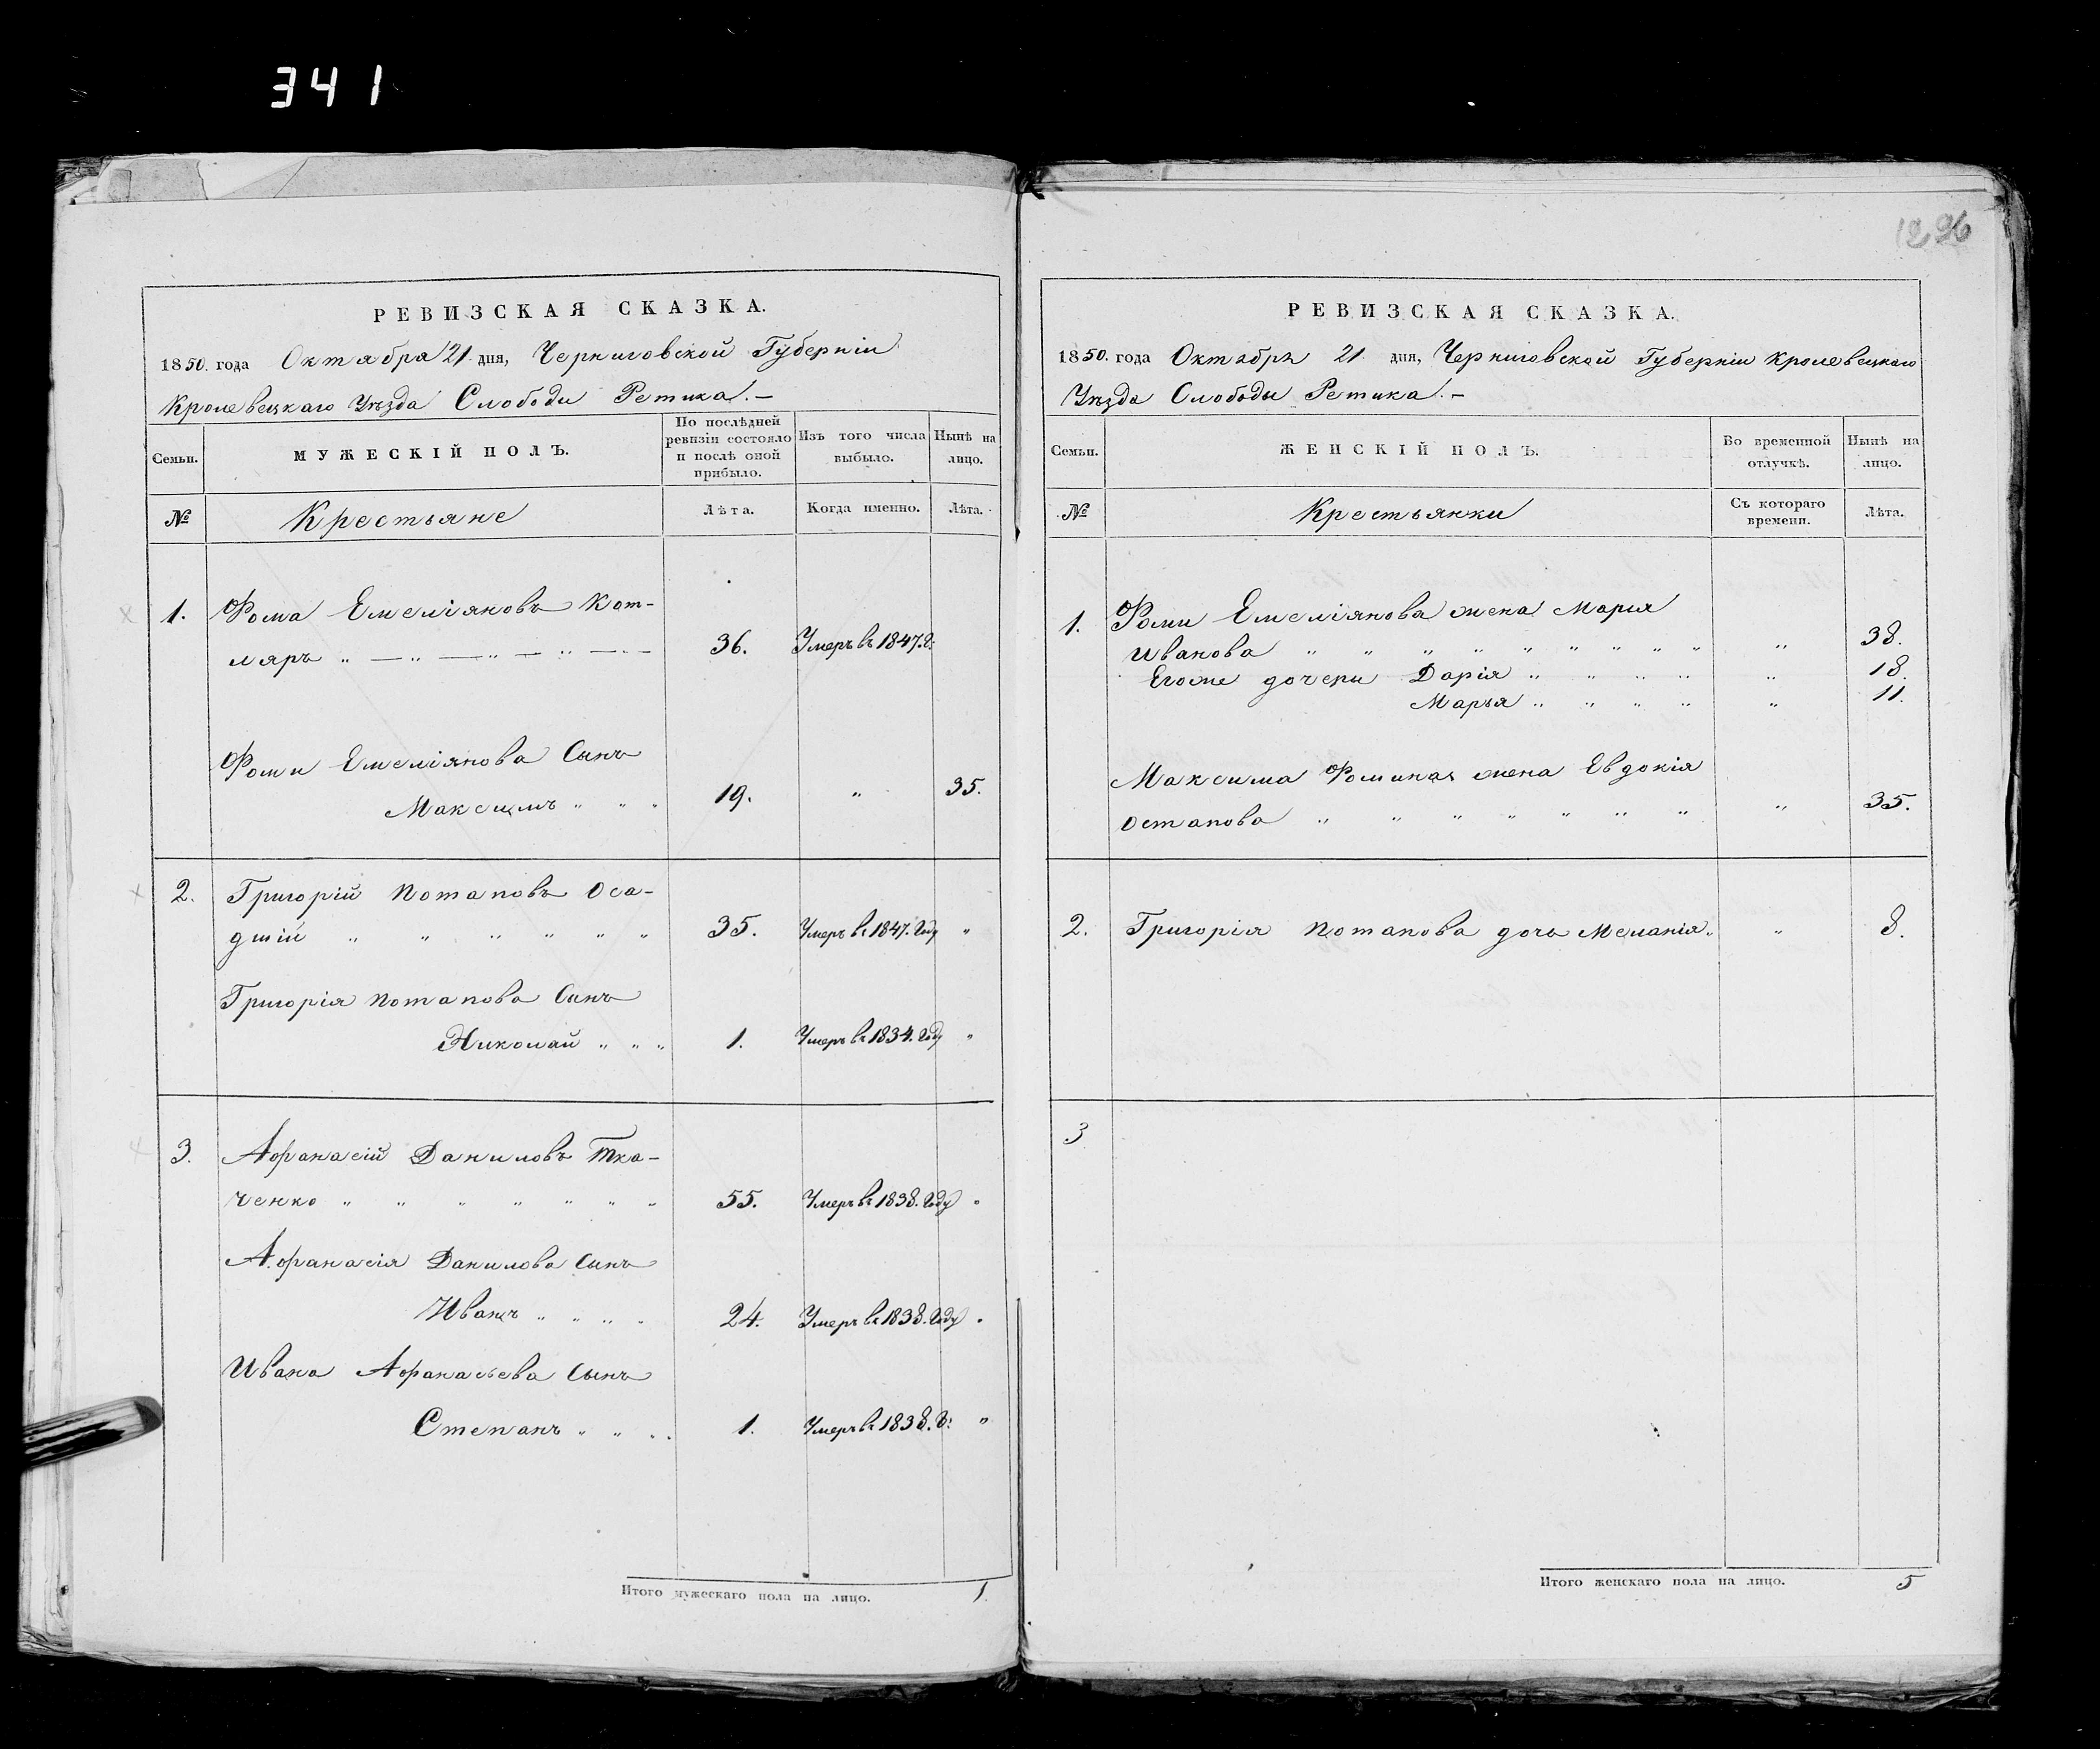 341
РЕВИЗСКАЯ СКАЗКА.
1850. года Октября 21. дня, Черниговской Губерніи
Кролевецкаго Уѣзда Слободы Ретика. —
Семьи.
МУЖЕСКІЙ ПОЛЪ.
По послѣдней
ревизіи состояло
и послѣ оной
прибыло.
Изъ того числа
выбыло.
Нынѣ на
лицо.
№
Крестьяне
Лѣта.
Когда именно.
Лѣта.
1. Фома Емеліяновъ Кот-
ляръ " — " — " — " — 36. Умеръ въ 1847. г:
Фомы Емеліянова Сынъ
Максимъ " " " 19. " 35.
2. Григорій Потаповъ Оса-
дшій " " " " " " 35. Умеръ въ 1847. Году "
Григорія Потапова Сынъ
Николай " " " 1. Умеръ въ 1834. Году "
3. Афранасій Даниловъ Тка-
ченко " " " " " " " 55. Умеръ въ 1838. Году "
Афранасія Данилова Сынъ
Иванъ " " " " 24. Умеръ въ 1838. Году "
Ивана Афранасьева Сынъ
Степанъ " " " " 1. Умеръ въ 1838. г: "
Итого мужескаго пола на лицо. 1.
1296
РЕВИЗСКАЯ СКАЗКА.
1850. года Октября 21 дня, Черниговской Губерніи Кролевецкаго
Уѣзда Слободы Ретика. —
Семьи.
ЖЕНСКІЙ ПОЛЪ.
Во временной
отлучкѣ.
Нынѣ на
лицо.
№
Крестьянки
Съ котораго
времени.
Лѣта.
1. Фомы Емеліянова жена Марія
Иванова " " " " " " " " " " 38.
Егоже дочери Дарія " " " " " 18.
Марья " " " " " 11.
Максима Фомина жена Евдокія
Остапова " " " " " " " " 35.
2. Григорія Потапова дочь Меланія " " 8.
3
Итого женскаго пола на лицо. 5